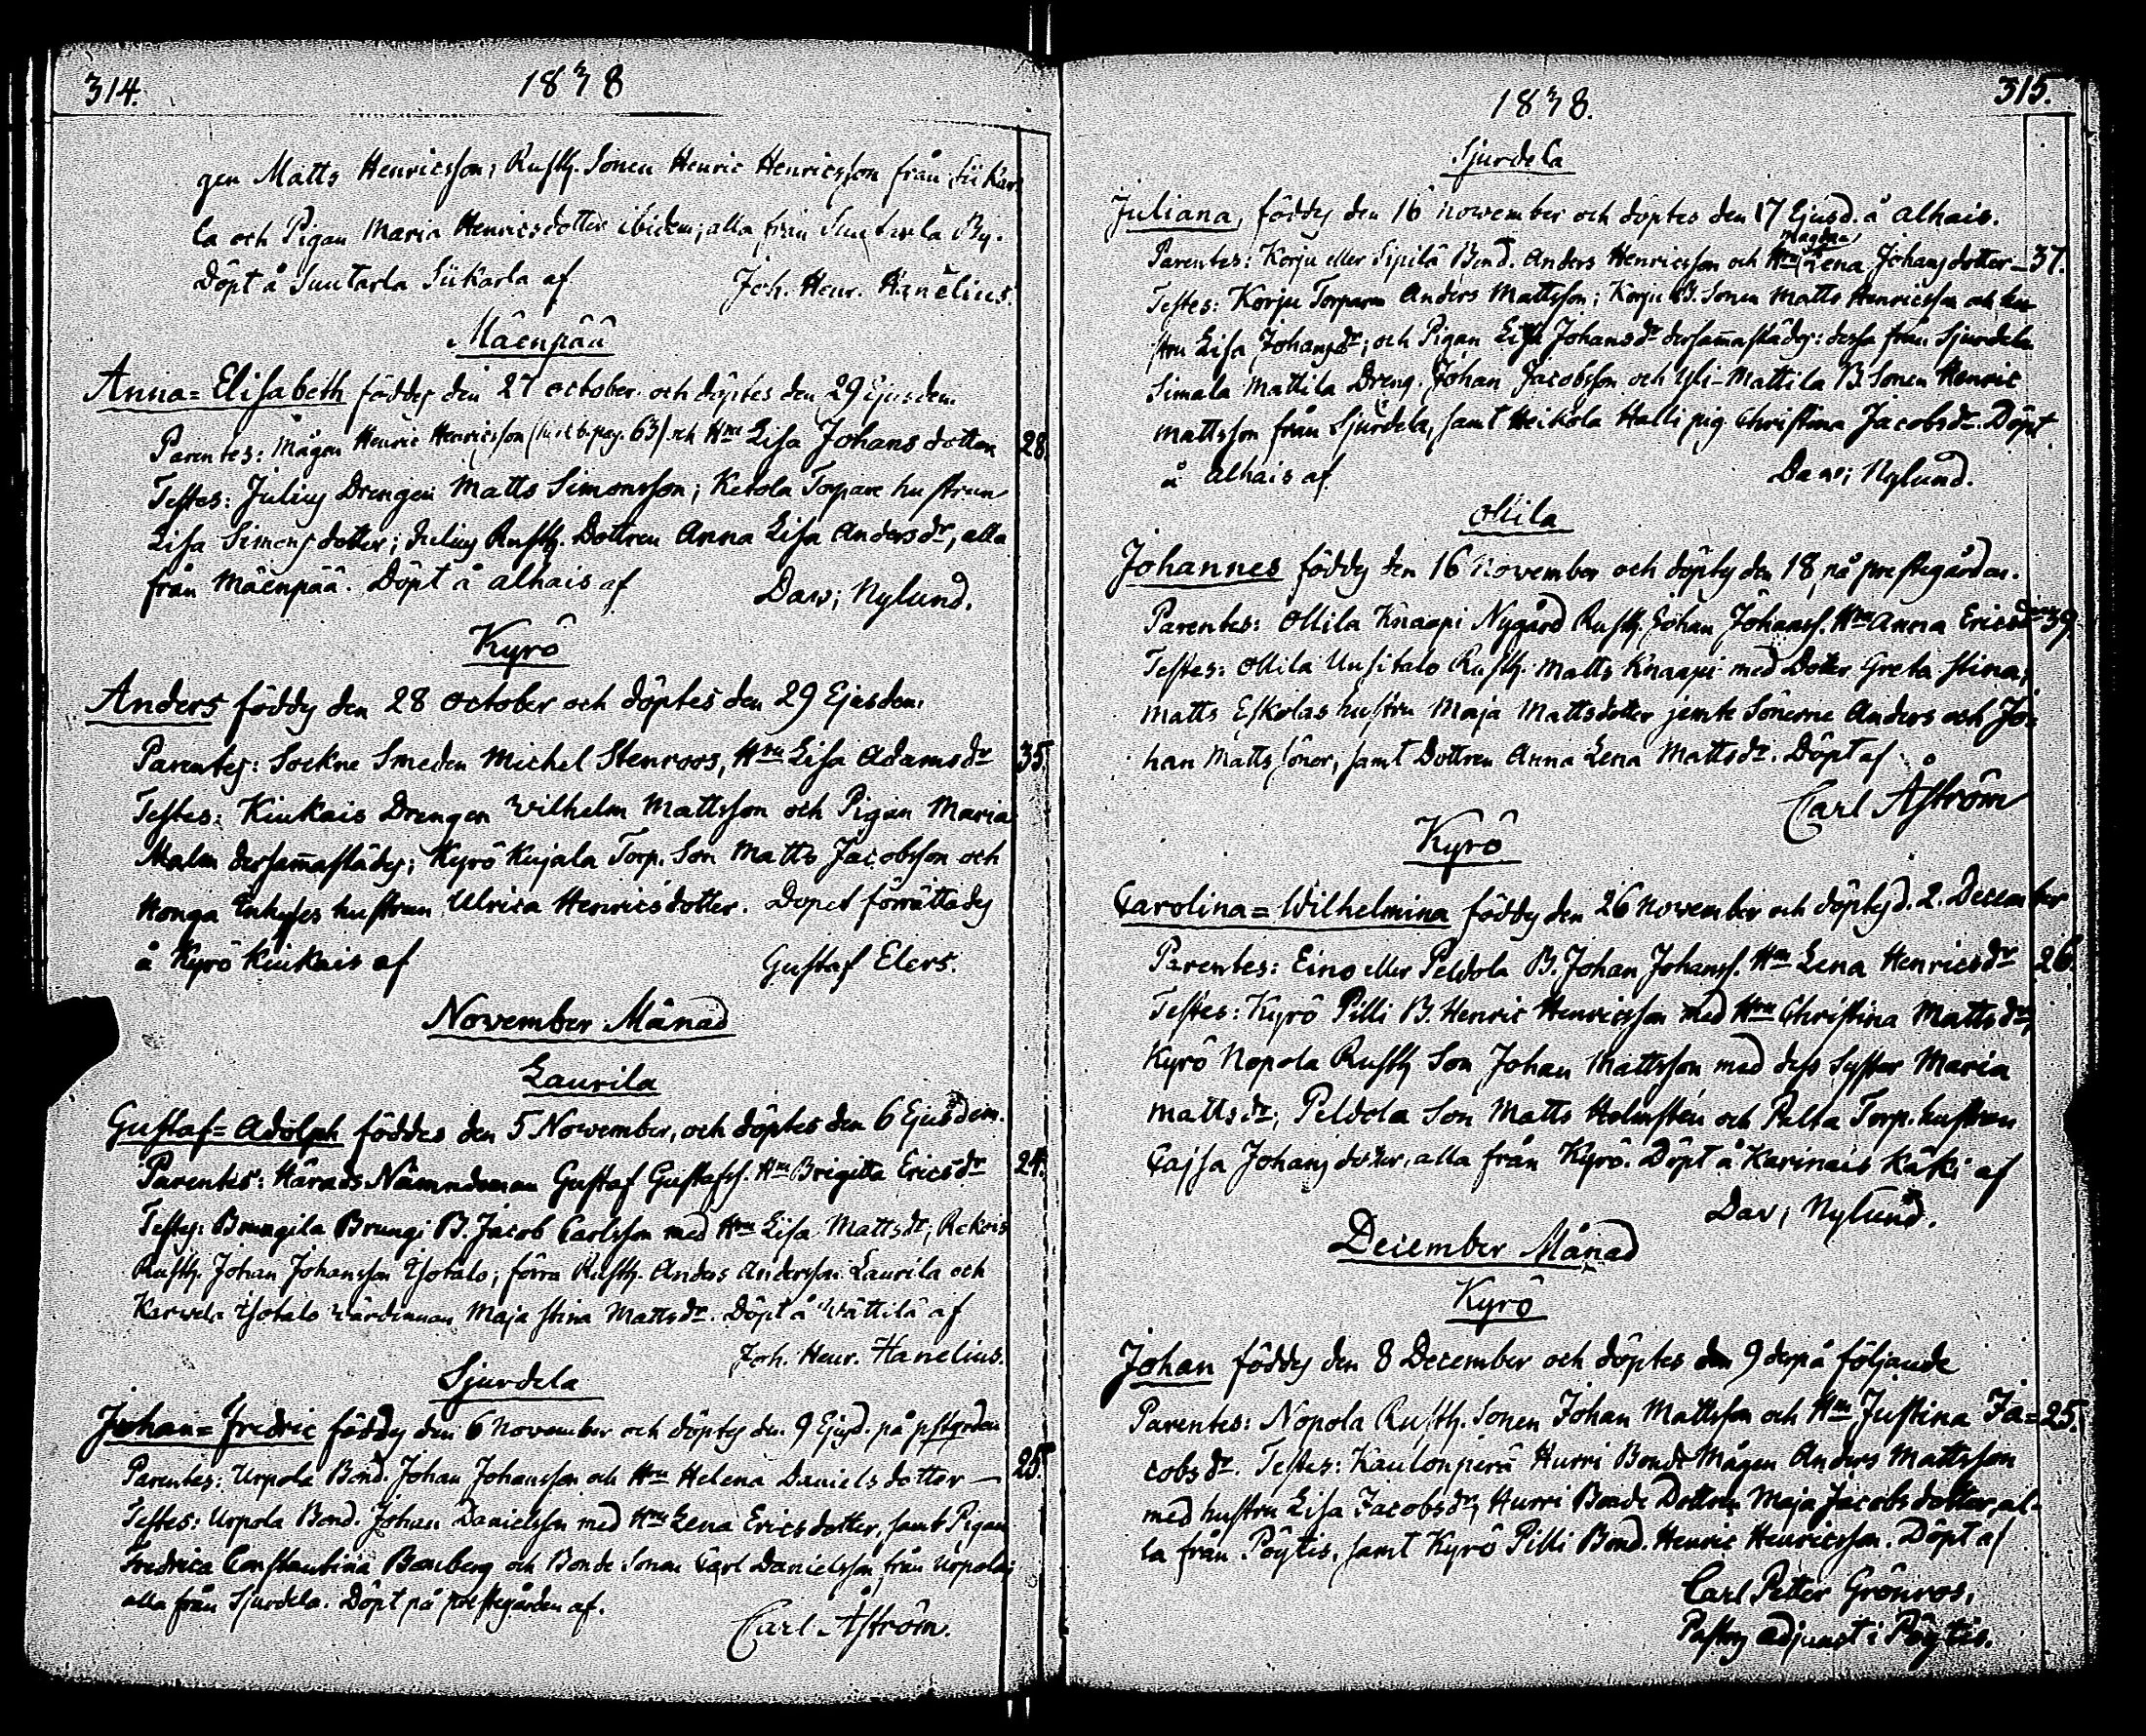 314.
1838
gen Matts Henricsson; Rusth. Sonen Henric Henricsson från Siikar
la och Pigan Maria Henricsdotter ibidem; alla från Suutarla By.
Döpt å Suutarla Siikarla af Joh. Henr. Hanelius.
Mäenpää
Anna=Elisabeth föddes den 27 October och döptes den 29 Ejusdem.
Parentes: Mågen Henric Henricsson pag. 63) och Hru Lisa Johans dotter 28.
Testes: Julius Drengen Matts Simonsson; Ketola Torpare hustrun
Lisa Simons dotter; Julius Rusth. Dottren Anna Lisa Andersdr, alla
från Mäenpää. Döpt å Alhais af Dav; Nylund.
Kyrö
Anders föddes den 28 October och döptes den 29 Ejusdem.
Parentes: Sockne Smeden Michel Stenroos, Hru Lisa Adamsdr 35.
Testes: Kiukais Drengen Wilhelm Mattsson och Pigan Maria
Malm dersam̄astädes; Kyrö Kujala Torp. Son Matts Jacobsson och
Honga hustrun Ulrica Henricsdotter. Dopet förrättades
å Kyrö Kiukais af Gustaf Elers.
November Månad
Laurila
Gustaf=Adolph föddes den 5 November, och döptes den 6 Ejusdem.
Parentes: Härads Nämndeman Gustaf Gustafss. Hru Brigitta Ericsdr 24.
Testes: Brungila Brungi B. Jacob Carlsson med Hru Lisa Mattsdr;
Rusth. Johan Johansson Isotalo; förra Rusth. Anders Andersson Laurila och
Karvela Isotalo Wärdinnan Maja Stina Mattsdr. Döpt å Wättilä af
Joh. Henr. Hanelius.
Sjurdela
Johan=Fredric föddes den 6 November och döptes den 9 Ejusd. på
Parentes: Urpola Bond. Johan Johansson och Hru Helena Daniels dotter — 25.
Testes: Urpola Bond. Johan Danielsson med Hru Lena Ericsdotter, samt Pigan
Fredrica Constantina och Bonde Sonen Carl Danielsson från Urpola;
alla från Sjurdela. Döpt på prestegården af.
Carl Åström.
315.
1838.
Sjurdela
Juliana, föddes den 16 November och döptes den 17 Ejusd. å Alhais.
Magdna
Parentes: Korju eller Sipilä Bond. Anders Henricsson och Hru Lena Johans dotter — 37.
Testes: Korju Torparen Anders Mattsson; Korju B. Sonen Matts Henricsson och hu
stru Lisa Johansdr; och Pigan Johansdr dersam̄astädes: dessa från Sjurdela
Simala Mattila Dreng. Johan Jacobsson och Yli-Mattila B. Sonen Henric
Mattsson från Sjurdela, samt Heikola Halli pig. Christina Jacobsdr. Döpt
å Alhais af Dav; Nylund.
Ollila
Johannes föddes den 16 November och döptes den 18 på prestegården.
Parentes: Ollila Knaapi Nygård Rusth. Johan Johanss. Hru Anna Ericsdr 39
Testes: Ollila Uusitalo Rusth. Matts Knaapi med Dotter Greta Stina;
Matts Eskolas hustru Maja Mattsdotter jemte Sönerne Anders och Jo=
han Matts söner, samt Dottren Anna Lena Mattsdr. Döpt af
Carl Åström
Kyrö
Carolina=Wilhelmina föddes den 26 November och döptes d. 2. December
Parentes: Eino eller Peldola B. Johan Johanss. Hru Lena Henricsdr 26.
Testes: Kyrö Pilli B. Henric Henricsson med Hru Christina Mattsdr;
Kyrö Nopola Rusth Son Johan Mattsson med dess Syster Maria
Mattsdr; Peldola Son Matts Holmstén och Palta Torp. hustrun
Cajsa Johans dotter, alla från Kyrö. Döpt å Karinais Käki af
Dav; Nylund.
December Månad
Kyrö
Johan föddes den 8 December och döptes den 9 derpå följande
Parentes: Nopola Rusth. Sonen Johan Mattsson och Hru Justina Ja= 25.
cobsdr. Testes: Kaulonperä Hurri Bonde Mågen Anders Mattsson
med hustru Lisa Jacobsdr, Hurri Bonde Dottren Maja Jacobsdotter, al-
la från Pöytis, samt Kyrö Pilli Bond. Henric Henricsson. Döpt af
Carl Petter Grönroos,
Past: Adjunct i Pöytis.